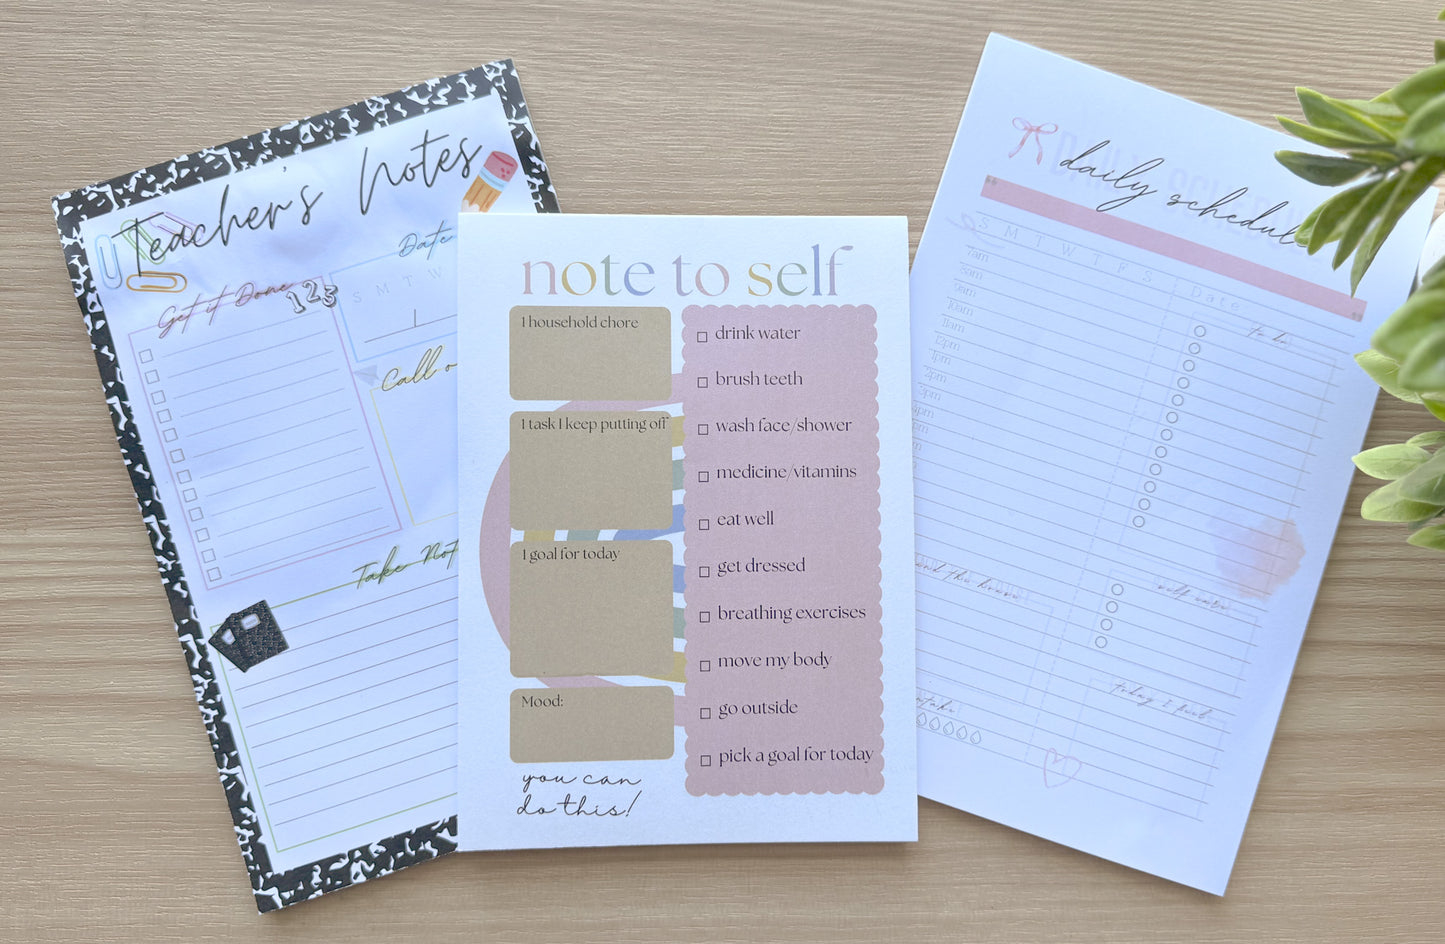 Teacher's Notes
Date
S M T W
Get it Done
123
Call o
Take Not
note to self
1 household chore
1 task I keep putting off
1 goal for today
Mood:
you can
do this!
drink water
brush teeth
wash face/shower
medicine/vitamins
eat well
get dressed
breathing exercises
move my body
go outside
pick a goal for today
daily schedule
S M T W T F S
Date
7am
8am
9am
10am
11am
12pm
1pm
2pm
3pm
4pm
to do
self care
today I feel